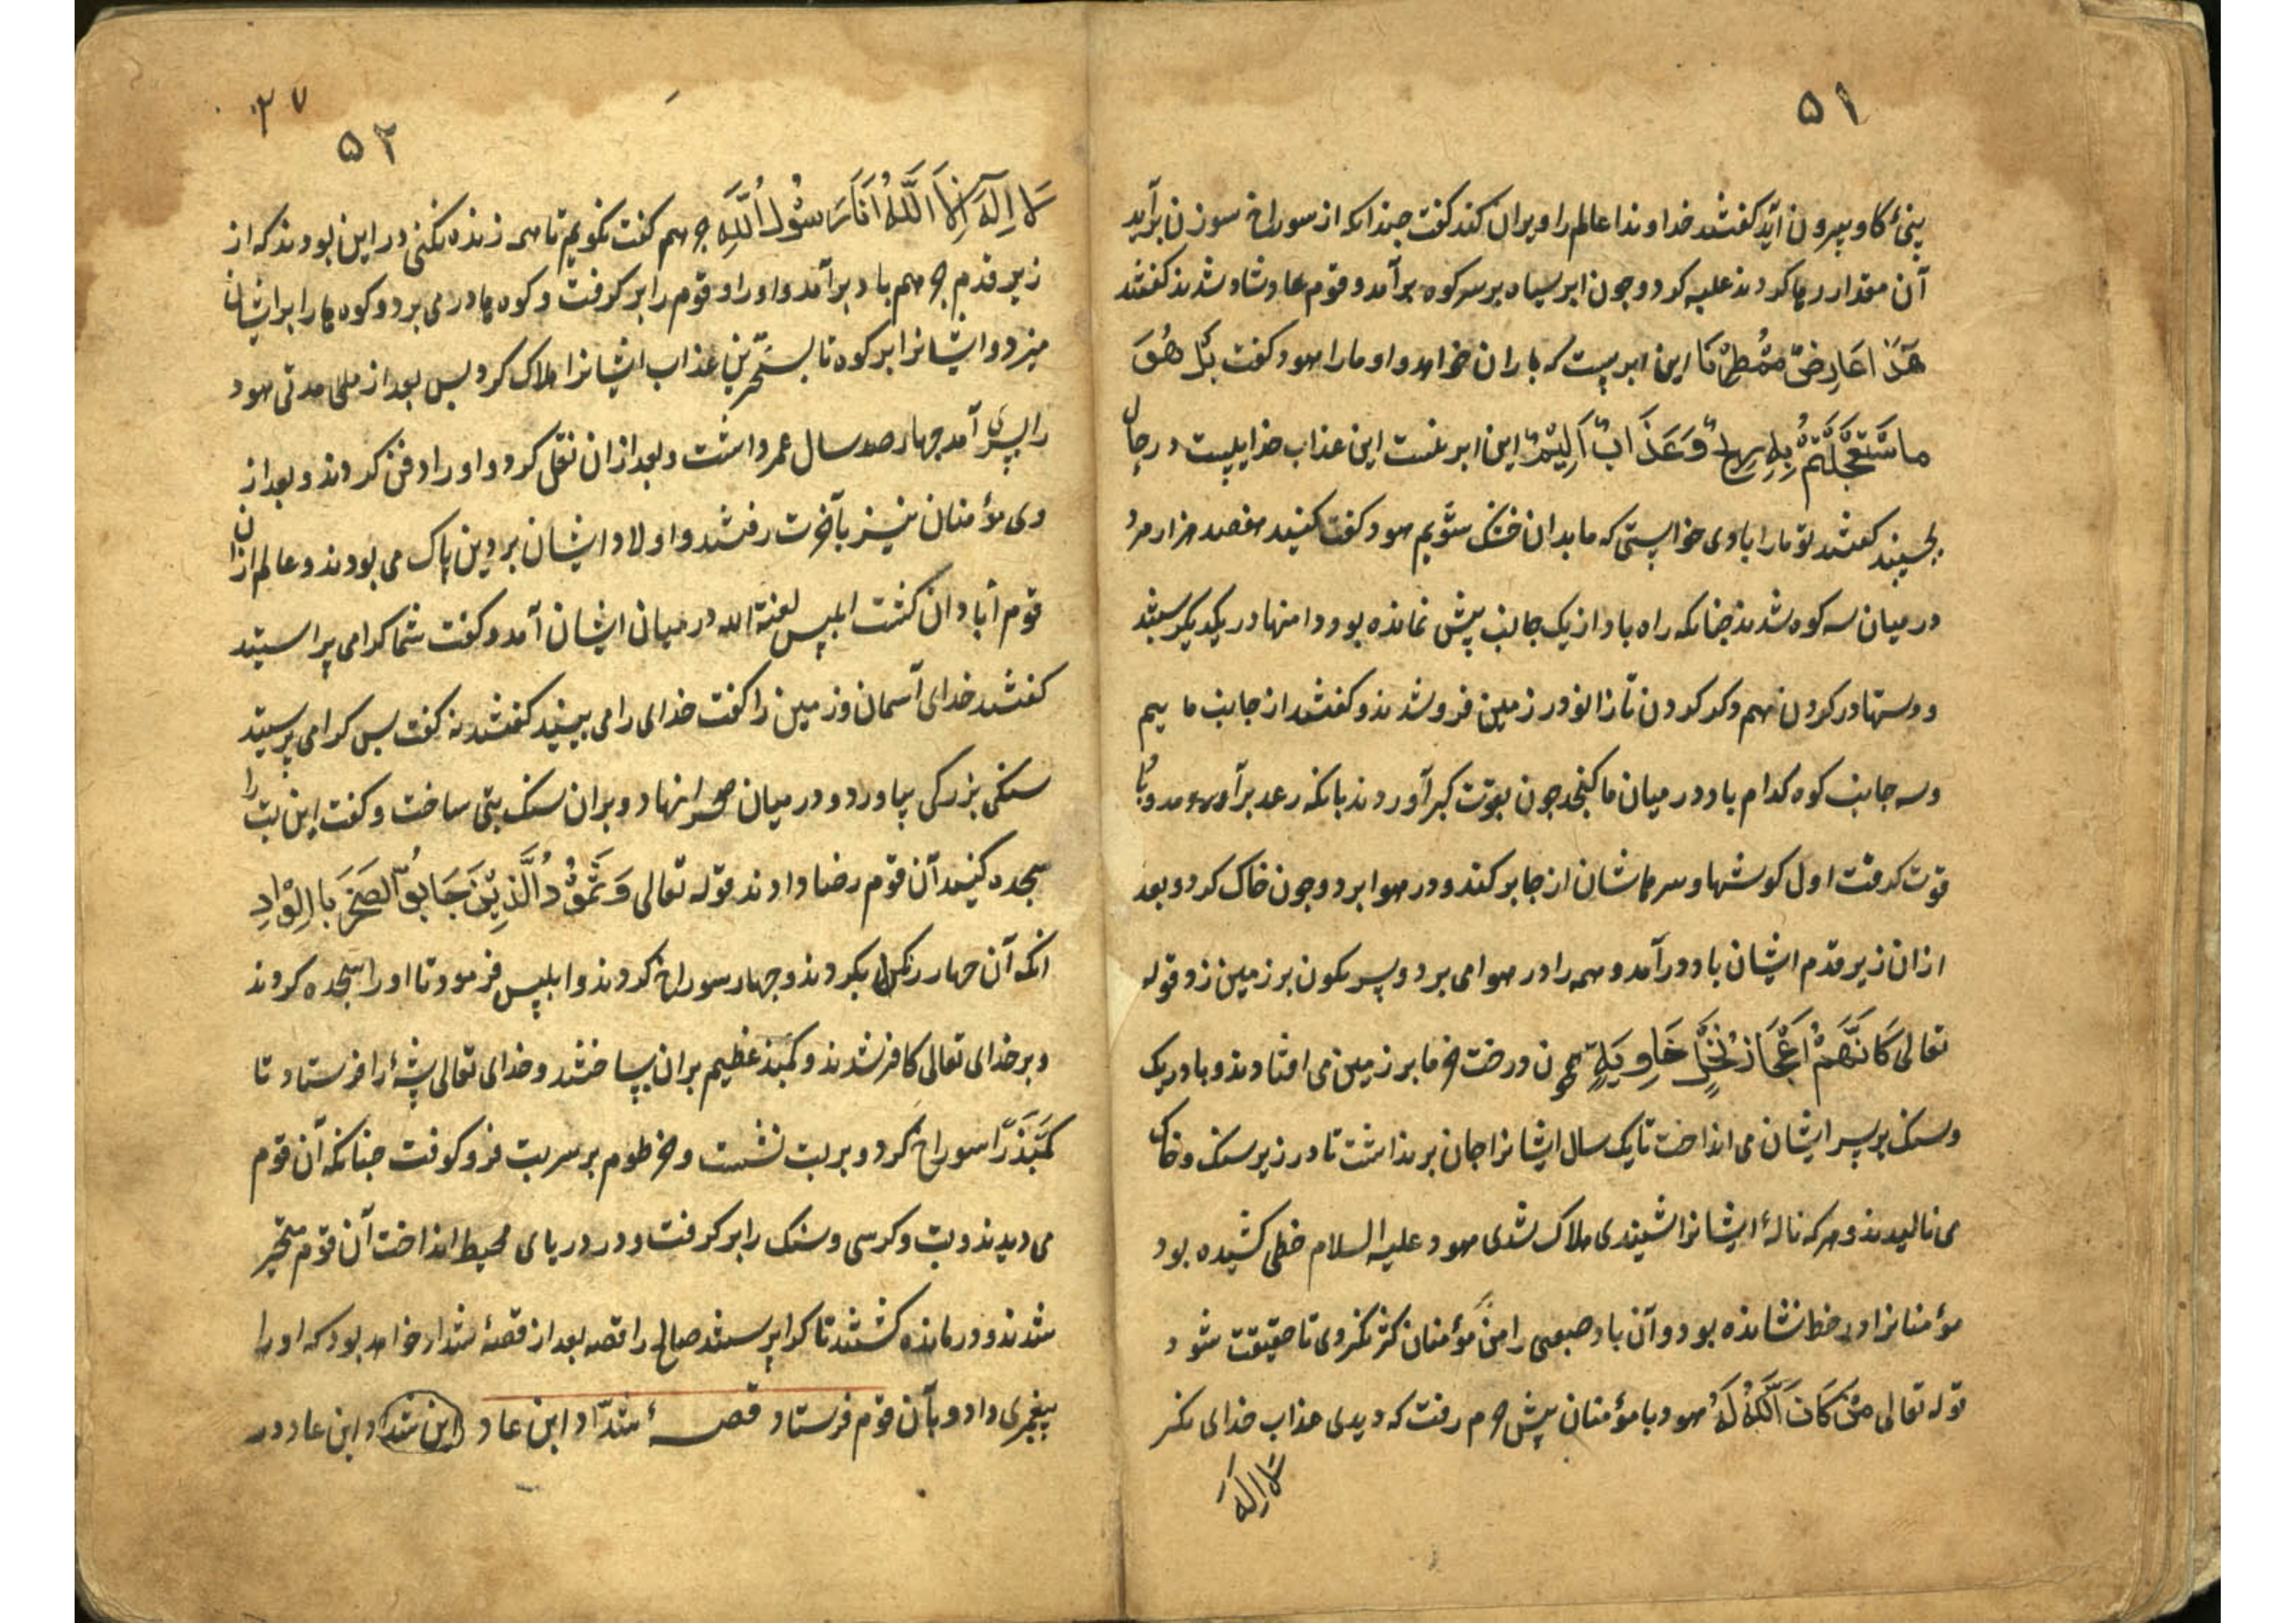 ۵۱
بینیٔ کاو بیرون آید کفتند خداوندا عالم را ویران کند کفت چندانکه از سوراخ سوزن برآید
آن مقدار رها کردند علیه کرد و چون ابر سیاه بر سر کوه برآمد و قوم عاد شاد شدند کفتند
هَذَا عَارِضٌ مُمْطِرُنَا این ابریست که باران خواهد داد ما را هود کفت بَلْ هُوَ
مَا سْتَعْجَلْتُمْ بِهِ رِیحٌ وَعَذَابٌ اَلِیْمٌ این ابر نیست این عذاب خدایست درجال
بجسیند کفتند تو ما را باوی خواستی که ما بدان خشک شویم هود کفت کنید هفصد هزار مرد
در میان سه کوه شدند چنانکه راه باد از یک جانب بیش نمانده بود و دامنها در یکدیکر بستند
و دستها در کردن هم دکر کردن تا زانو در زمین فرو شدند و کفتند از جانب ما ییم
و سه جانب کوه کدام باد در میان ما کنجد چون بقوت کبر آوردند بانکه رعد برآمد و باد
قوت کرفت اول کوشها و سرهاشان از جا بر کند و در هوا برد و چون خاک کرد و بعد
ازان زیر قدم ایشان باد درآمد و همه را در هوا می برد و بسر نکون بر زمین زد قوله
تعالی کَاَنَّهُمْ اَعْجَازُ نَخْلٍ خَاوِیَةٍ همچون درخت خرما بر زمین می افتادند و باد ریک
و سنک بر سر ایشان می انداخت تا یک سال ایشانرا جان بر نداشت تا در زیر سنک و خاک
می نالیدند و هر که نالهٔ ایشانرا شنیدی هلاک شدی هود علیه السلام خطی کشیده بود
مؤمنانرا در خط نشانده بود و آن باد صعبی را من مؤمنان کثر نکردی تا حقیقت شود
قوله تعالی مَنْ کَانَ اللّٰهُ لَهُ هود با مؤمنان پیش جرهم رفت که دیدی عذاب خدای نکر
لَا اِلَهَ
۲۷
۵۲
لَا اِلَهَ اِلَّا اللّٰهُ اَنَا رَسُولُ اللّٰهِ جرهم کفت نکویم تا همه زنده نکنی در این بودند که از
زیر قدم جرهم باد برآمد و او را و قوم را بر کرفت و کوه ها در می برد و کوه ها را بر ایشان
میزد و ایشانرا بر کوه تا بسخترین عذاب ایشانرا هلاک کرد پس بعد از ملی مدتی هود
را پسری آمد چهار صد سال عمر داشت و بعد ازان نقل کرد و او را دفن کردند و بعد از
وی مؤمنان نیز بآخرت رفتند و اولاد ایشان بر دین پاک می بودند و عالم ازان
قوم آبادان کشت ابلیس لعنة الله در میان ایشان آمد و کفت شما کرا می پراستید
کفتند خدای آسمان و زمین را کفت خدای را می بینید کفتند نه کفت پس کرا می پرستید
سنکی بزرکی بیاورد و در میان صحرا نهاد و بران سنک بتی ساخت و کفت این بت را
سجده کنید آن قوم رضا دادند قوله تعالی وَ ثَمُوْدُ الَّذِیْنَ جَابُوا الصَّخْرَ بِالْوَادِ
انکه آن چهار رنکل بکردند و چهار سوراخ کردند و ابلیس فرمود تا او را سجده کردند
و بر خدای تعالی کافر شدند و کنبد عظیم بران بساختند و خدای تعالی پشهٔ را فرستاد تا
کنبد را سوراخ کرد و بر بت نشست و خرطوم بر سر بت فرو کوفت چنانکه آن قوم
می دیدند و بت و کرسی و سنک را بر کرفت و در دریای محیط انداخت آن قوم متحیر
شدند و درمانده کشتند تا کرا پرستند صالح را قصه بعد از قصهٔ شداد خواهد بود که او را
پیغمبری داد و بآن قوم فرستاد قصهٔ شدّاد ابن عاد این شداد ابن عاد در